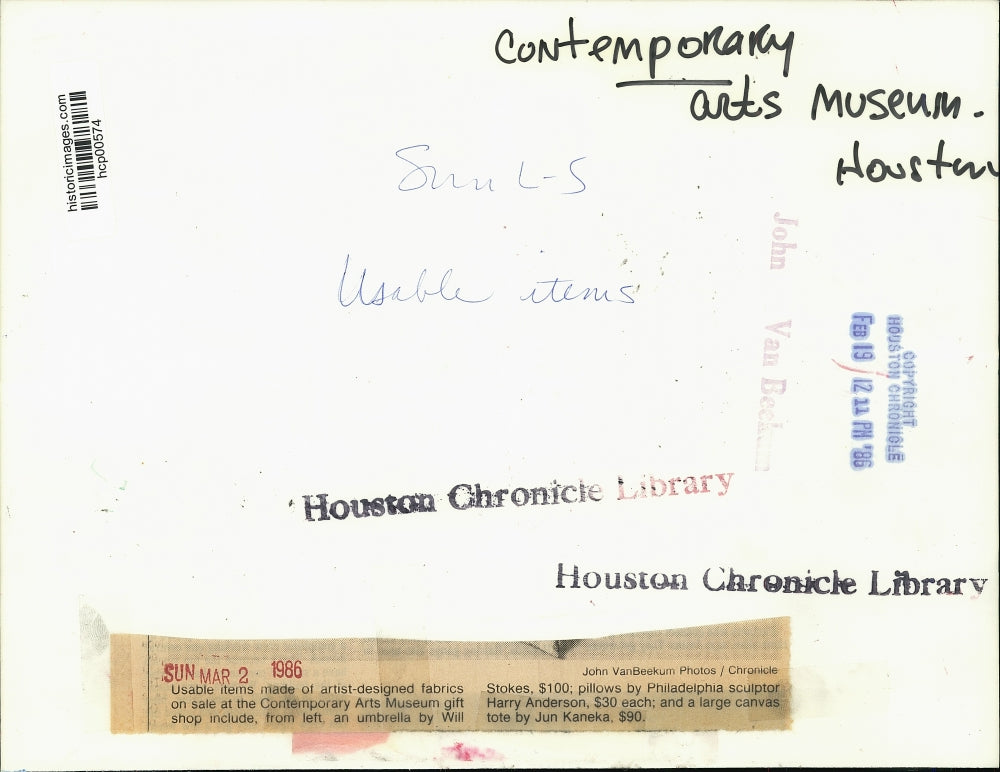 Contemporary
arts Museum.
Houston
historicimages.com
hcp00574
Sun L-S
Usable items
John Van Beekum
COPYRIGHT
HOUSTON CHRONICLE
FEB 19 12 11 PM '86
Houston Chronicle Library
Houston Chronicle Library
SUN MAR 2 1986
Usable items made of artist-designed fabrics
on sale at the Contemporary Arts Museum gift
shop include, from left, an umbrella by Will
John VanBeekum Photos / Chronicle
Stokes, $100; pillows by Philadelphia sculptor
Harry Anderson, $30 each; and a large canvas
tote by Jun Kaneka, $90.